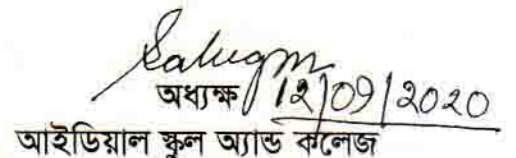 অধ্যক্ষ 12/09/2020
আইডিয়াল স্কুল অ্যান্ড কলেজ